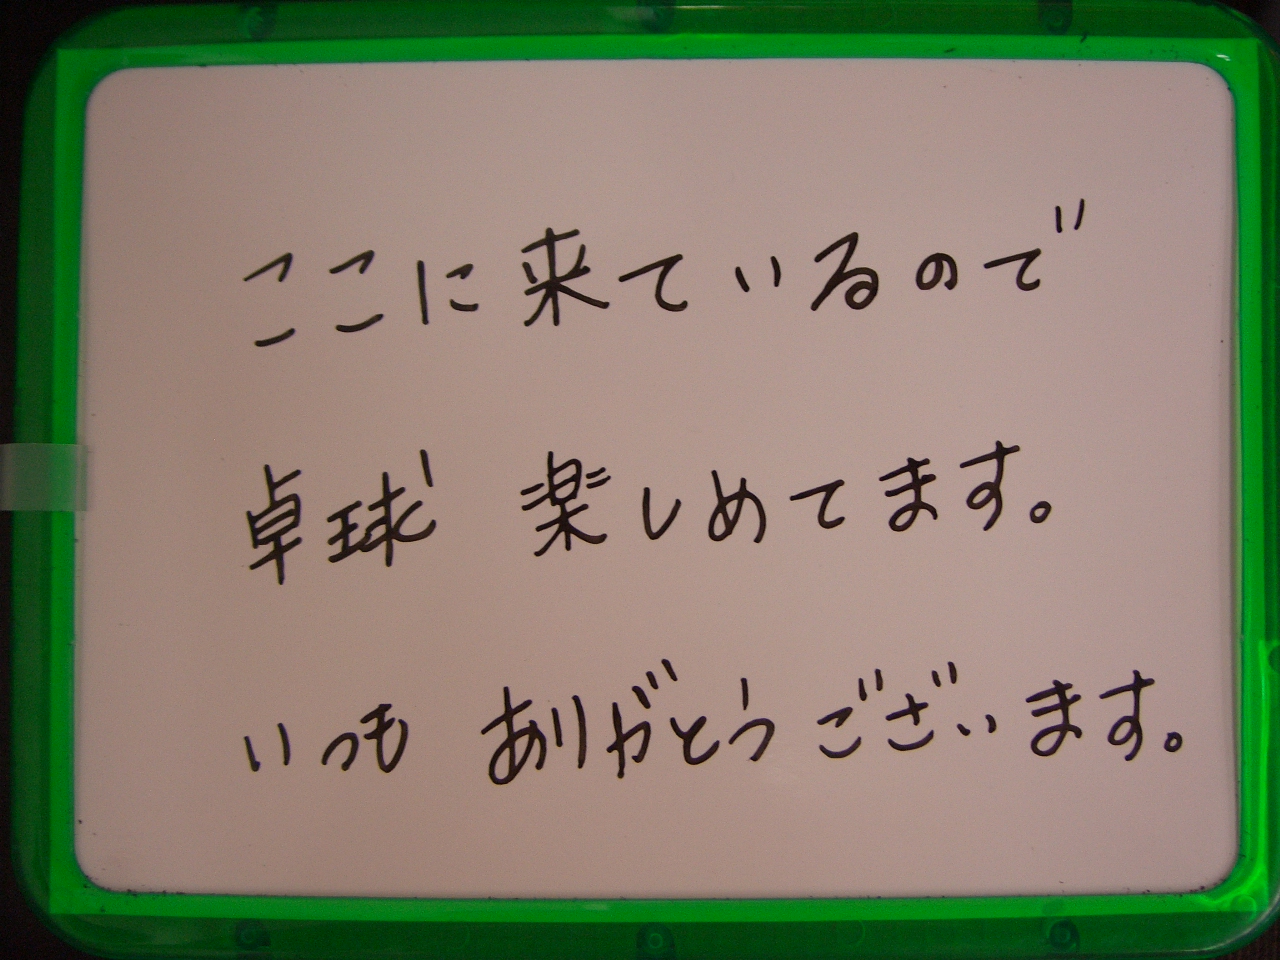 ここに来ているので
卓球 楽しめてます。
いつも ありがとうございます。